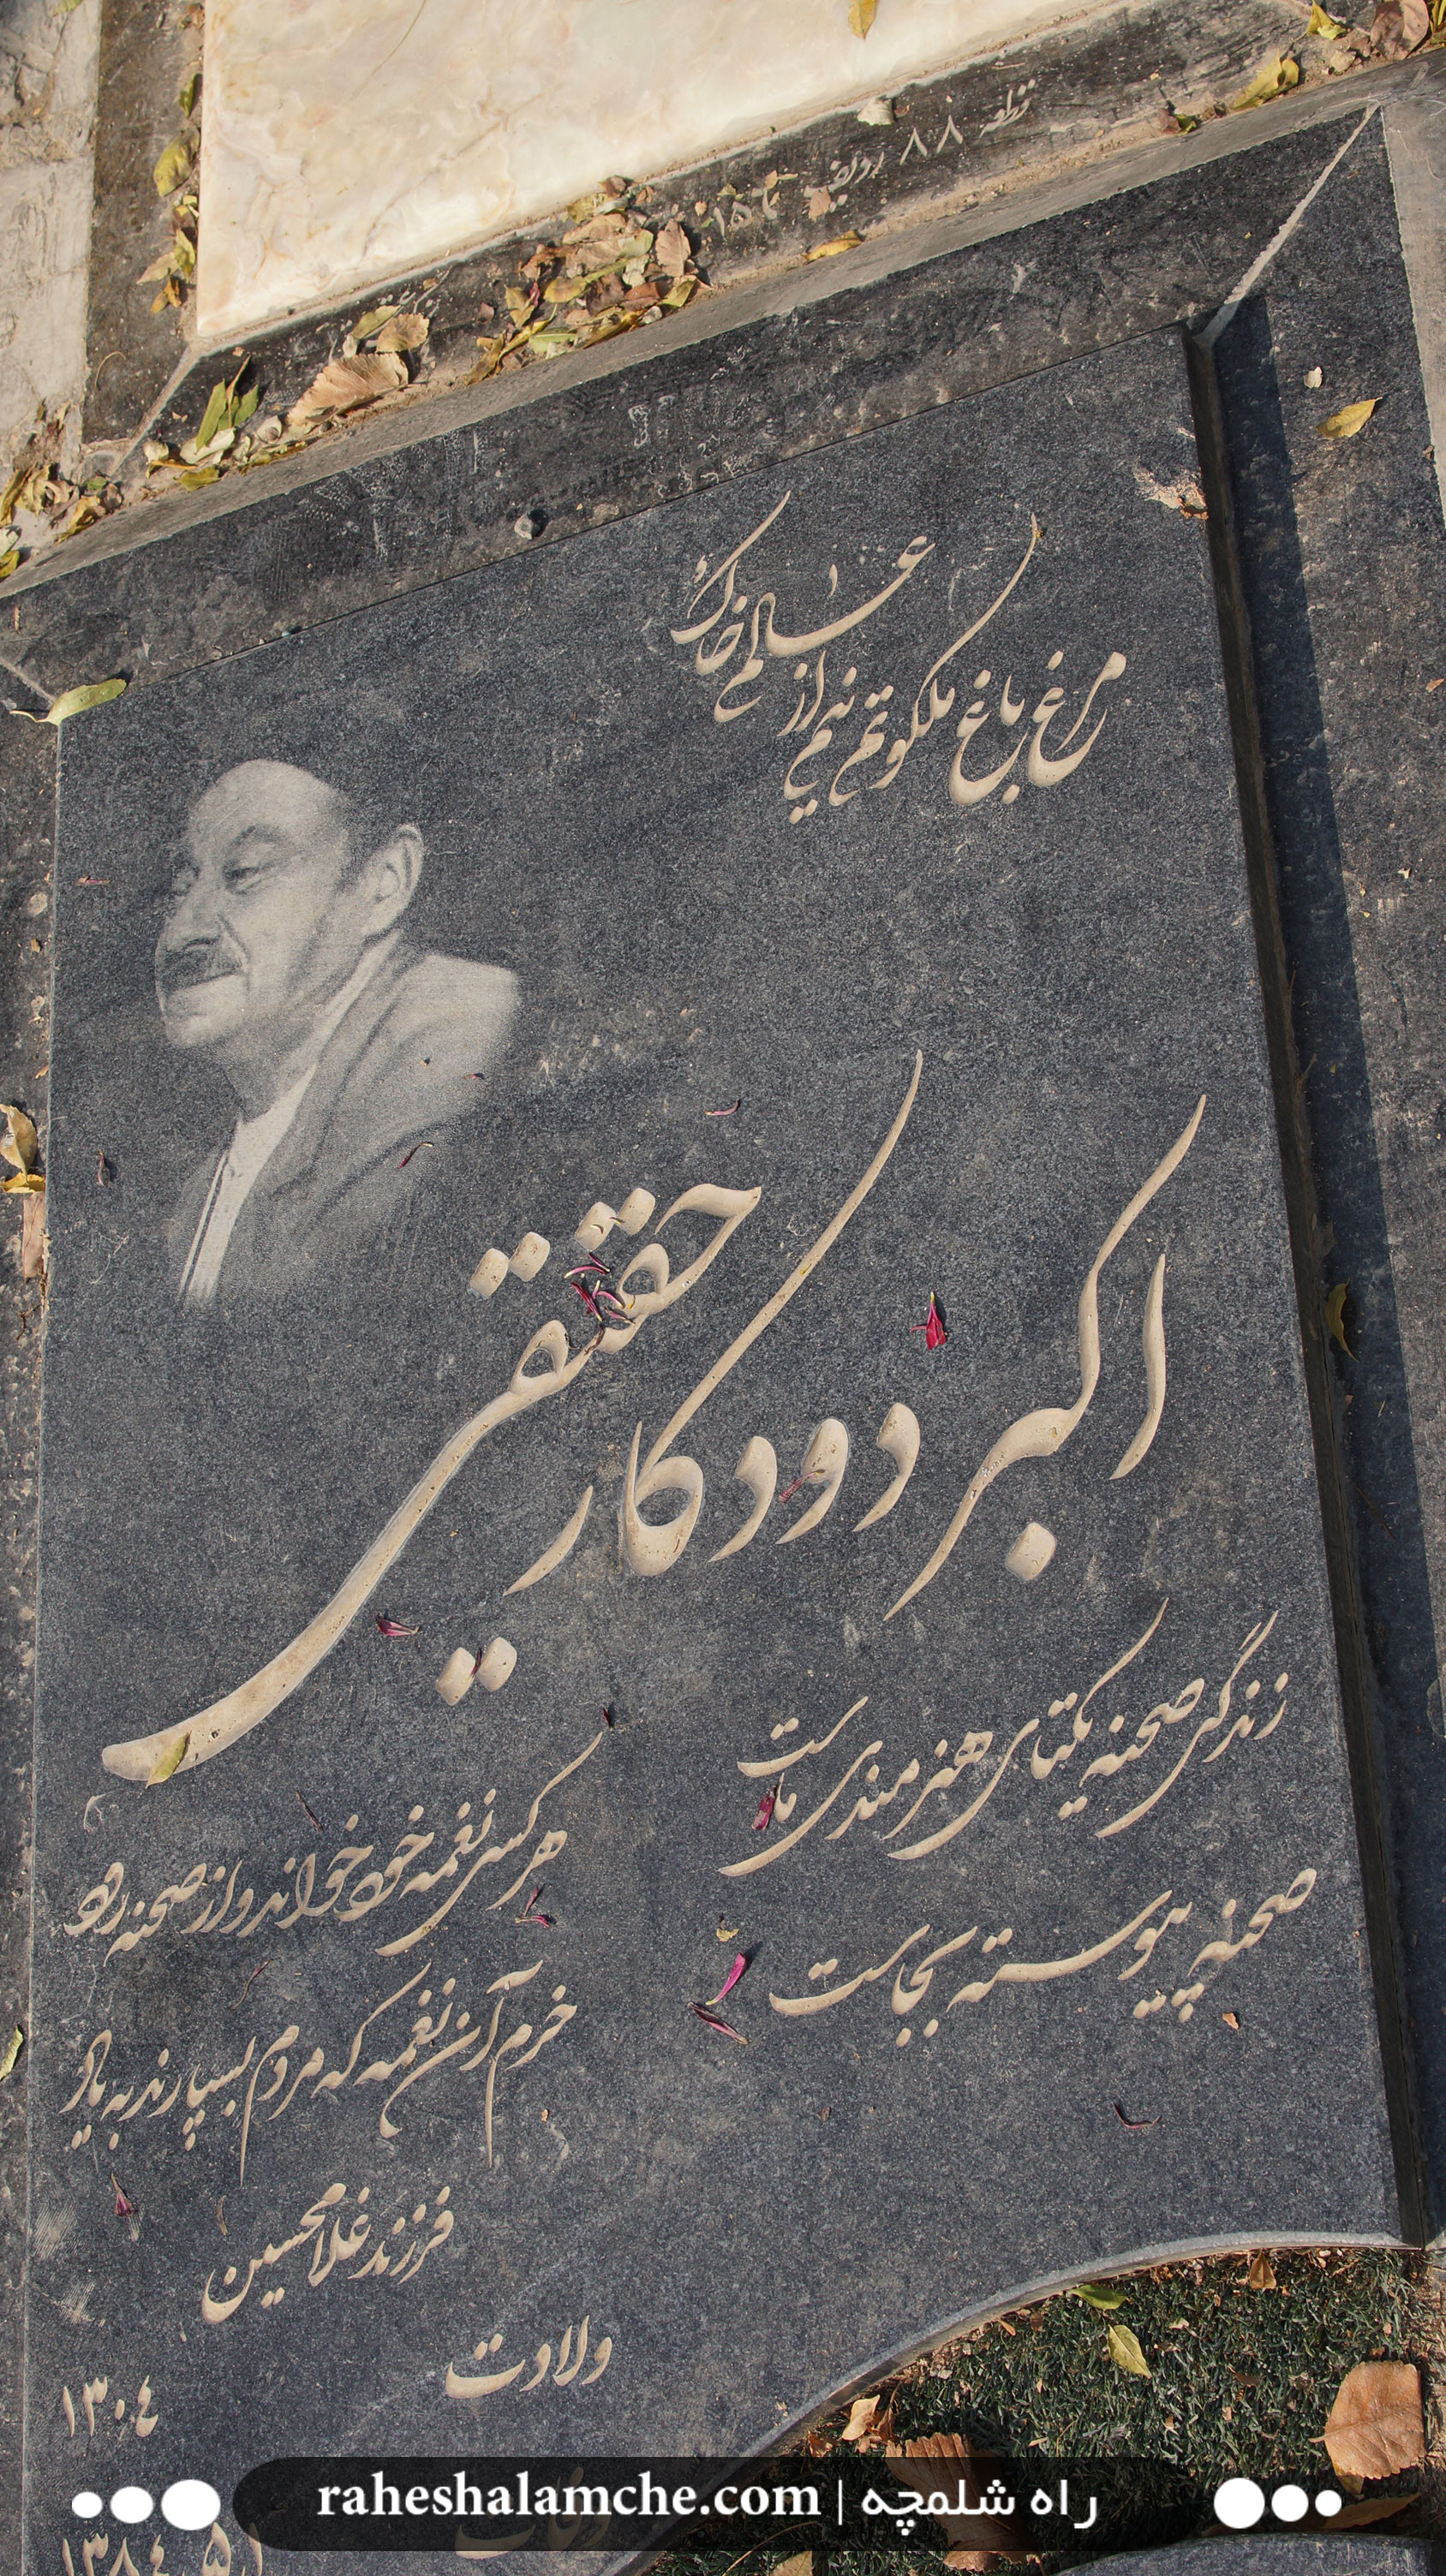 قطعه ۸۸ ردیف ۱۵۱
مرغ باغ ملکوتم نیم از عالم خاک
اکبر دودکار حقیقی
زندگی صحنه یکتای هنرمندی ماست
هر کسی نغمه خود خواند و از صحنه رود
صحنه پیوسته بجاست
خرم آن نغمه که مردم بسپارند به یاد
فرزند غلامحسین
ولادت
۱۳۰٤
وفات
راه شلمچه | raheshalamche.com